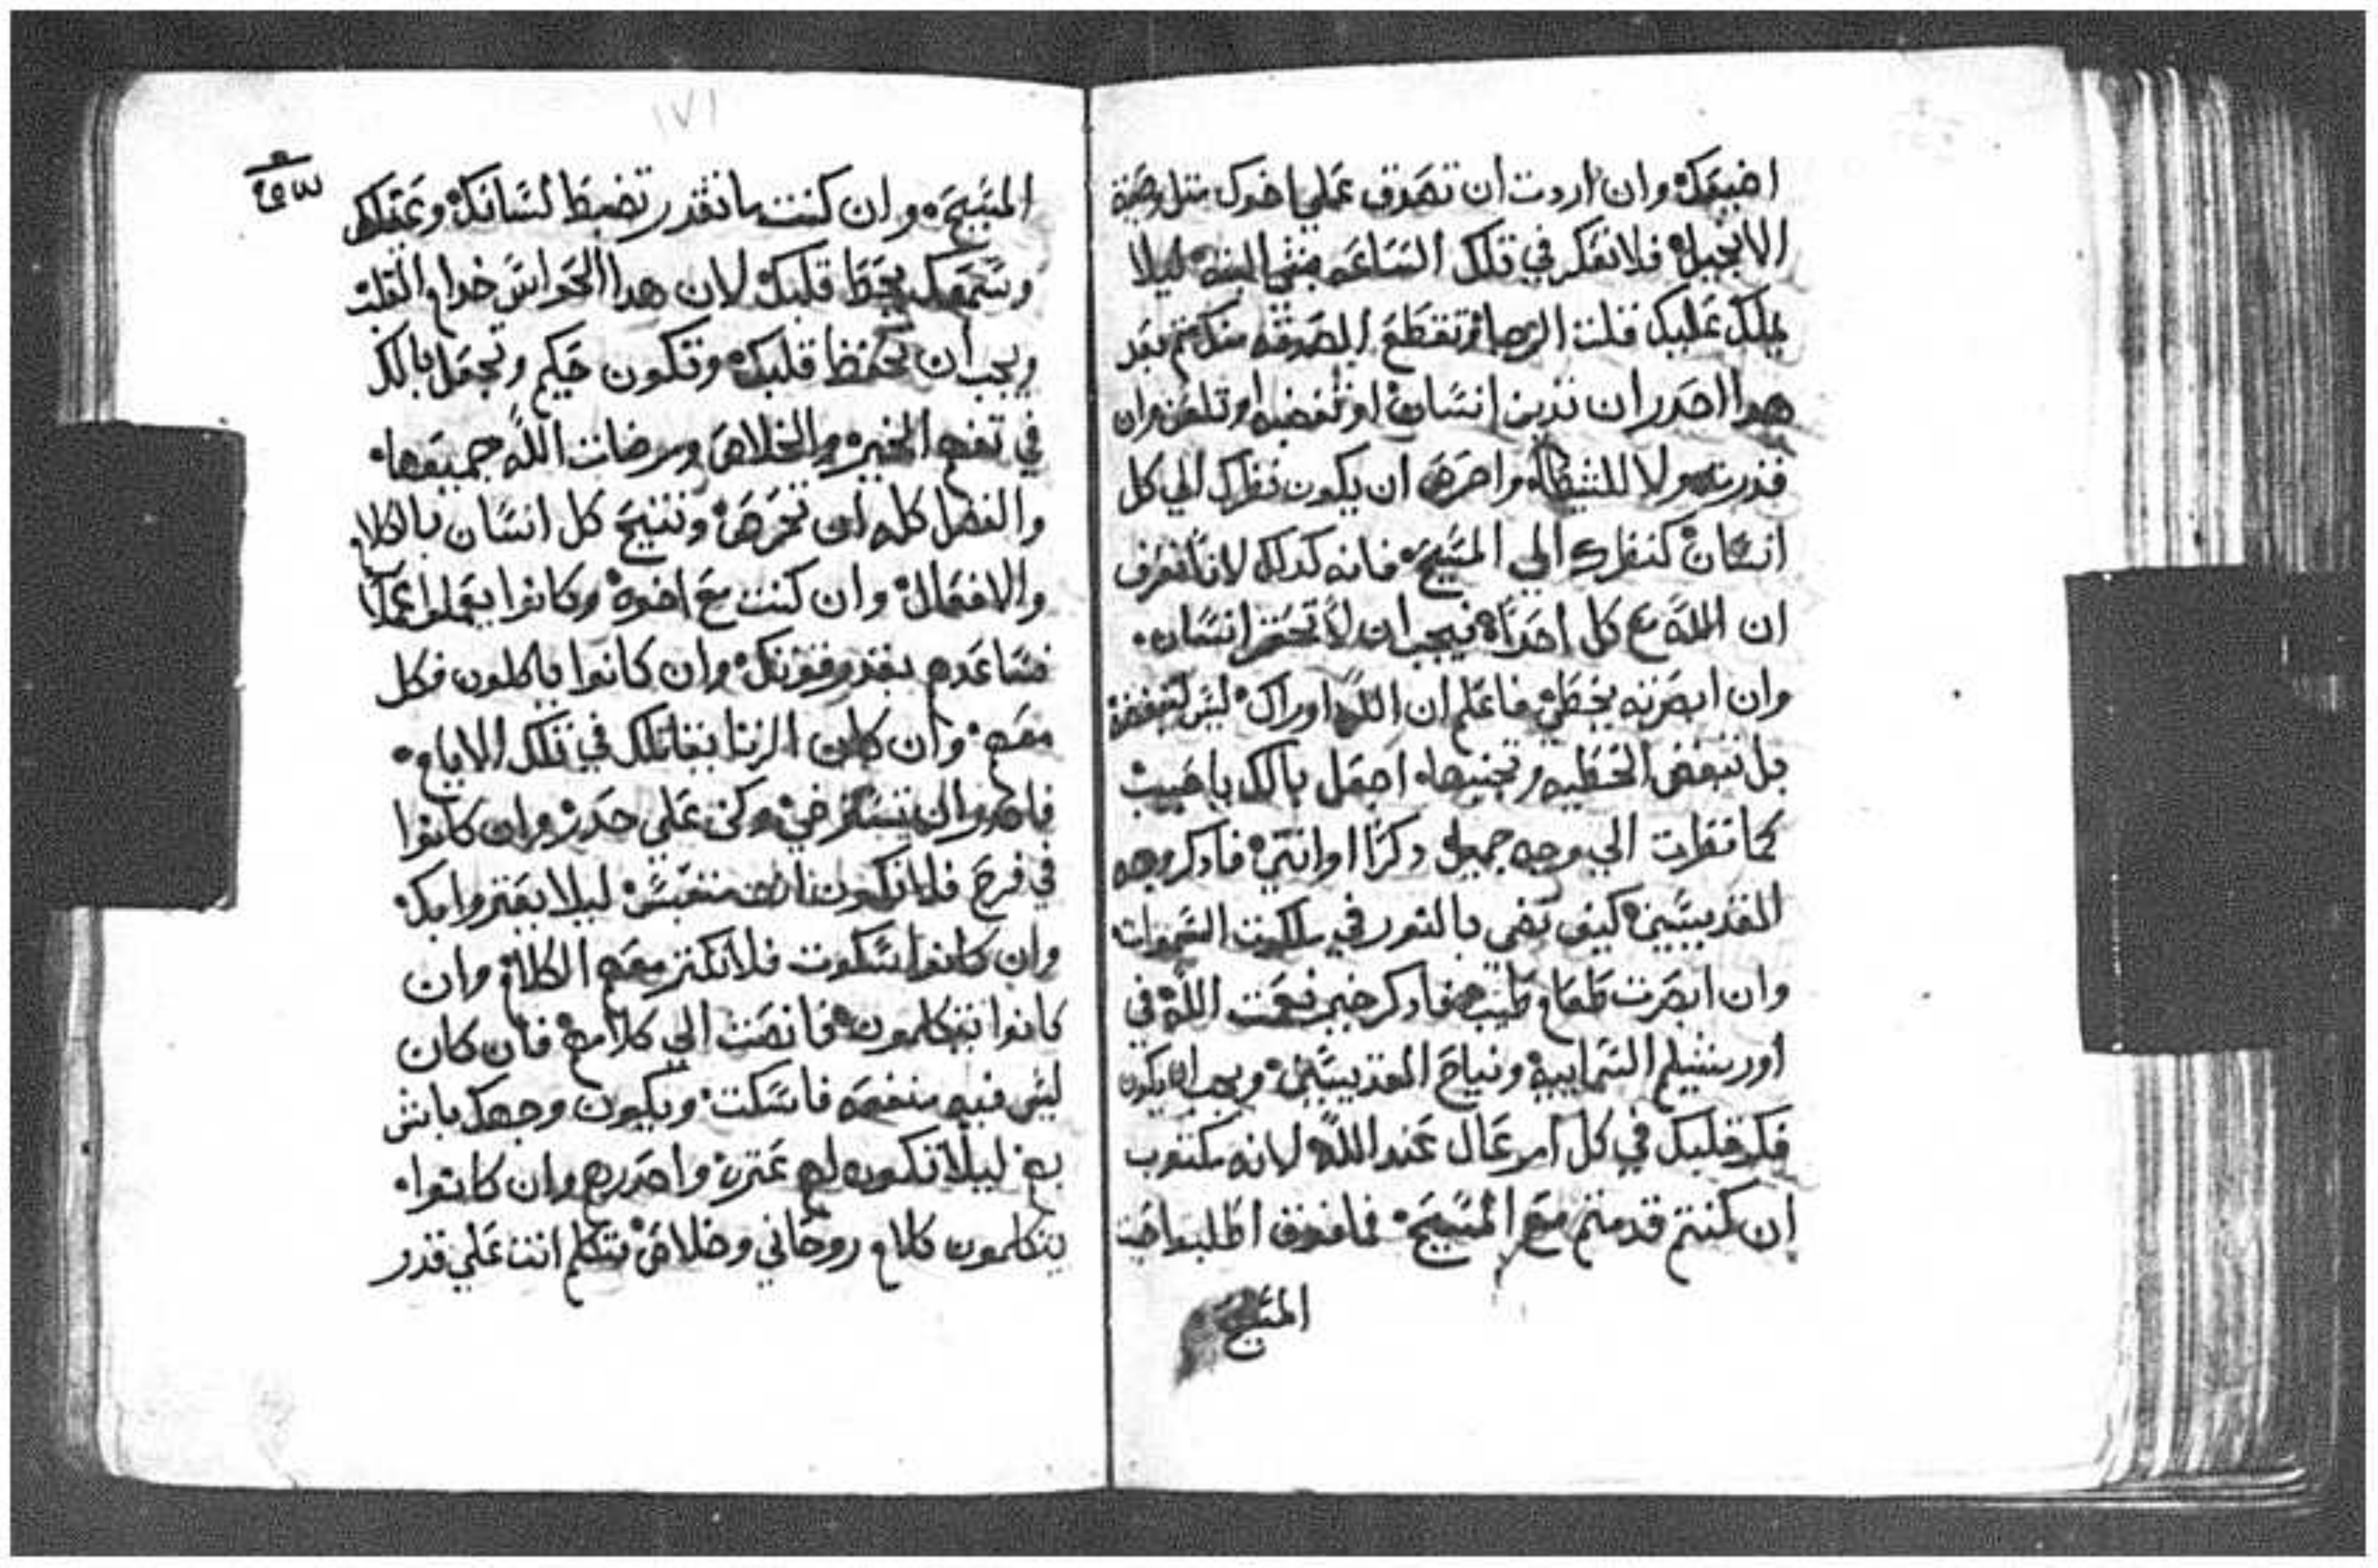 اضيعك وان اردت ان تصدق علي اخوك متل وصية
الانجيل فلا تفكر في تلك الساعه بشي البته ليلا
يملك عليك قلت الرجا وتقطع الصدقه منكم بعد
هدا احدر ان تدين انسان او تبغضه او تلعن وان
ولا للشيطان واحرص ان يكون نظرك الي كل
انسان كنظرك الي المسيح فانه كدلك لاننا نعرف
ان الله مع كل احدا فيجب ان لا تحتقر انسان
وان ابصرته يخطي فاعلم ان الله اوراك ليس لتبغضه
بل تبغض الخطيه وتجنبها اجعل بالك يا حبيب
كما نظرت الي وجه جميل دكرا او انتي فادكر وجه
القديسين كيف تضي بالنور في ملكوت السموات
وان ابصرت طعام طيب فادكر خير نعمت الله في
اورشليم السماييه ونياح القديسين ويجب ان يكون
فكر قلبك في كل امر عال عند الله لانه مكتوب
ان كنتم قد متم مع المسيح فما فوق اطلبوا حيت
المسيح
١٧١
المسيح وان كنت ما تقدر تضبط لسانك وعقلك
وسمعك يحفظ قلبك لان هدا الحواس خدام القلب
ويجب ان تحفظ قلبك وتكون حكيم وتجعل بالك
في تفهم الخير والخلاص ومرضات الله جميعها
والفضل كله ان تحرص وتنيح كل انسان بالكلام
والافعال وان كنت مع اخوه وكانوا يعملوا عملا
فساعدهم بقدر قوتك وان كانوا ياكلون فكل
معهم وان كان الزنا يقاتلك في تلك الايام
وكن علي حدر وان كانوا
في فرح فلا تكون انت متعبس ليلا يعتروا بك
وان كانوا سكوت فلا تكتر معهم الكلام وان
كانوا يتكلمون فانصت الي كلامهم فان كان
ليس فيه منفعه فاسكت ويكون وجهك باش
بهم ليلا تكون لهم عترة واحدرهم وان كانوا
يتكلمون كلام روحاني وخلاص فتكلم انت علي قدر